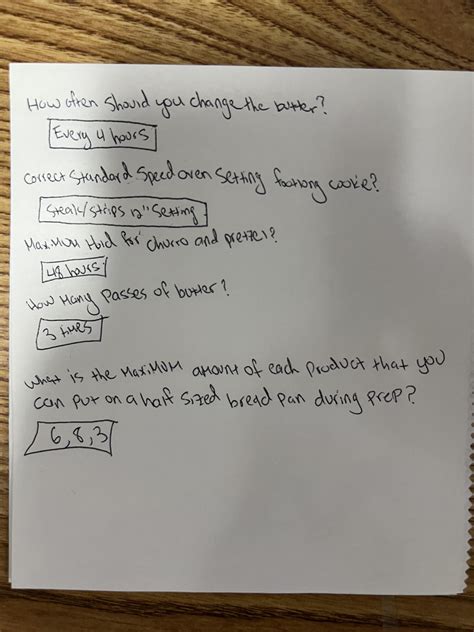 How often should you change the butter?
Every 4 hours
Correct Standard Speed oven Setting footlong cookie?
Steak/strips 12" Setting
Maximum Hold for churro and pretzel?
48 hours
How Many Passes of butter?
3 times
What is the Maximum amount of each product that you
can put on a half sized bread pan during prep?
6,8,3